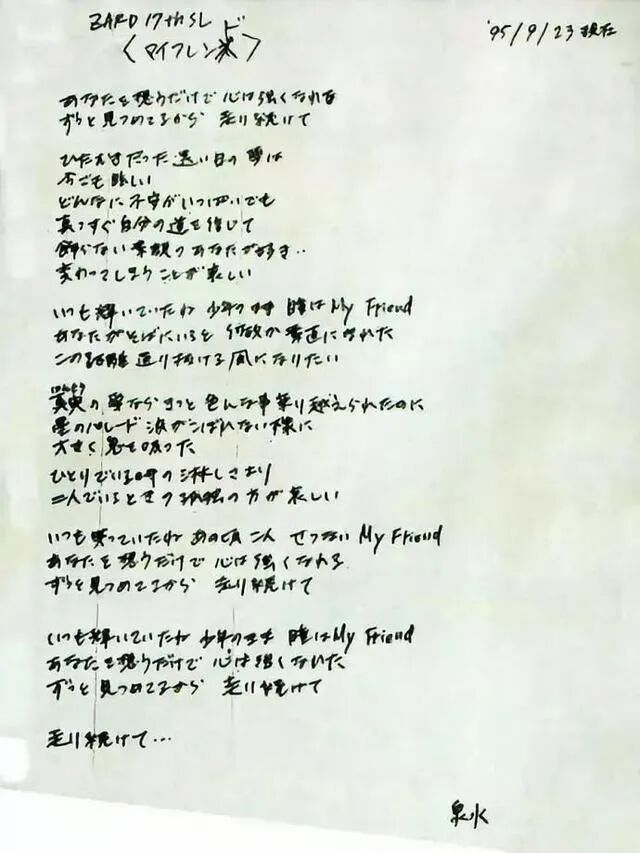 ZARD 17th SL
〈マイフレンド〉
'95/9/23 現在
あなたを想うだけで 心は強くなれる
ずっと見つめてるから 走り続けて
ひたむきだった 遠い日の夢は
今でも眩しい
どんなに不安がいっぱいでも
真っすぐ自分の道を信じて
飾らない素顔のあなたが好き‥
変わってしまうことが悲しい
いつも輝いていたね 少年のまま 瞳はMy Friend
あなたがそばにいると 何故か素直になれた
この距離通り抜ける 風になりたい
真実の夢なら きっと色んな事乗り越えられたのに
星のパレード 涙がこぼれない様に
大きく息を吸った
ひとりでいる時の淋しさより
二人でいるときの孤独の方が哀しい
いつも笑っていたね あの頃 二人 せつない My Friend
あなたを想うだけで 心は強くなれる
ずっと見つめてるから 走り続けて
いつも輝いていたね 少年のまま 瞳はMy Friend
あなたを想うだけで 心は強くなれた
ずっと見つめてるから 走り続けて
走り続けて…
泉水